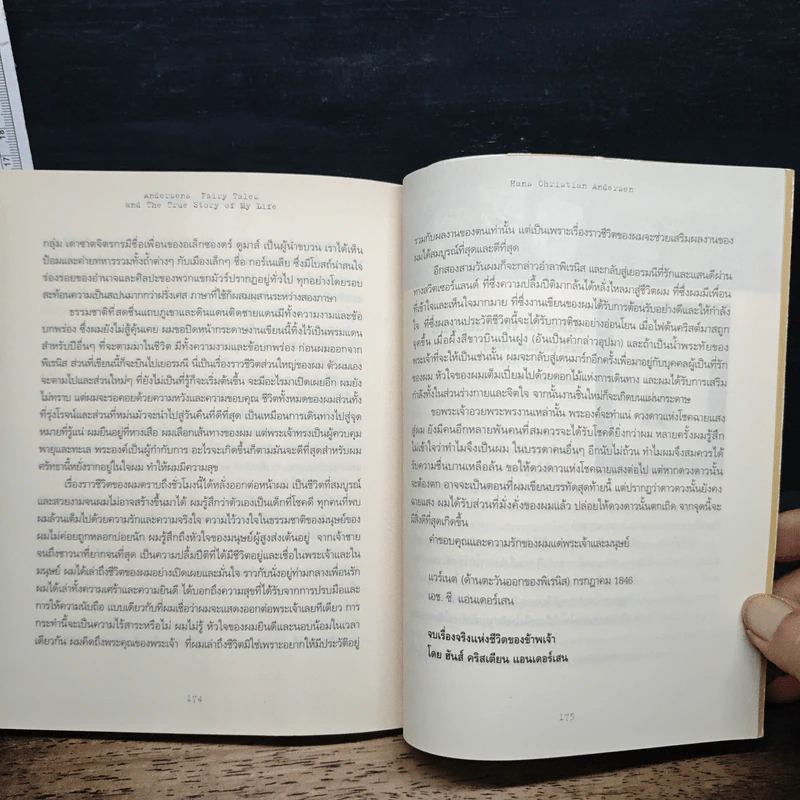 Andersens Fairy Tales
and The True Story of My Life
กลุ่ม เดาซาตจิตรกรมีชื่อเพื่อนของอเล็กซองดร์ ดูมาส์ เป็นผู้นำขบวน เราได้เห็น
ป้อมและค่ายทหารรวมทั้งถ้ำต่างๆ กับเมืองเล็กๆ ชื่อ กอร์เนเลีย ซึ่งมีโบสถ์น่าสนใจ
ร่องรอยของอำนาจและศิลปะของพวกแขกมัวร์ปรากฏอยู่ทั่วไป ทุกอย่างโดยรอบ
สะท้อนความเป็นสเปนมากกว่าฝรั่งเศส ภาษาที่ใช้ก็ผสมผสานระหว่างสองภาษา
ธรรมชาติที่สดชื่นแถบภูเขาและดินแดนติดชายแดนมีทั้งความงามและข้อ
บกพร่อง ซึ่งผมยังไม่รู้คุ้นเคย ผมขอปิดหน้ากระดาษงานเขียนนี้ทิ้งไว้เป็นพรมแดน
สำหรับปีอื่นๆ ที่จะตามมาในชีวิต มีทั้งความงามและข้อบกพร่อง ก่อนผมออกจาก
พิเรนิส ส่วนที่เขียนนี้ก็จะบินไปเยอรมนี นี่เป็นเรื่องราวชีวิตส่วนใหญ่ของผม ตัวผมเอง
จะตามไปและส่วนใหม่ๆ ที่ยังไม่เป็นที่รู้ก็จะเริ่มต้นขึ้น จะมีอะไรมาเปิดเผยอีก ผมยัง
ไม่ทราบ แต่ผมจะรอคอยด้วยความหวังและความขอบคุณ ชีวิตทั้งหมดของผมส่วนทั้ง
ที่รุ่งโรจน์และส่วนที่หม่นมัวจะนำไปสู่วันคืนที่ดีที่สุด เป็นเหมือนการเดินทางไปสู่จุด
หมายที่รู้แน่ ผมยืนอยู่ที่หางเสือ ผมเลือกเส้นทางของผม แต่พระเจ้าทรงเป็นผู้ควบคุม
พายุและทะเล พระองค์เป็นผู้กำกับการ อะไรจะเกิดขึ้นก็ตามมันจะดีที่สุดสำหรับผม
ศรัทธานี้หยั่งรากอยู่ในใจผม ทำให้ผมมีความสุข
เรื่องราวชีวิตของผมตราบถึงชั่วโมงนี้ได้หลั่งออกต่อหน้าผม เป็นชีวิตที่สมบูรณ์
และสวยงามจนผมไม่อาจสร้างขึ้นมาได้ ผมรู้สึกว่าตัวเองเป็นเด็กที่โชคดี ทุกคนที่พบ
ผมล้วนเต็มไปด้วยความรักและความจริงใจ ความไว้วางใจในธรรมชาติของมนุษย์ของ
ผมไม่ค่อยถูกหลอกบ่อยนัก ผมรู้สึกถึงหัวใจของมนุษย์ผู้สูงส่งเต้นอยู่ จากเจ้าชาย
จนถึงชาวนาที่ยากจนที่สุด เป็นความปลื้มปีติที่ได้มีชีวิตอยู่และเชื่อในพระเจ้าและใน
มนุษย์ ผมได้เล่าถึงชีวิตของผมอย่างเปิดเผยและมั่นใจ ราวกับนั่งอยู่ท่ามกลางเพื่อนรัก
ผมได้เล่าทั้งความเศร้าและความยินดี ได้บอกถึงความสุขที่ได้รับจากการปรบมือและ
การให้ความนับถือ แบบเดียวกับที่ผมเชื่อว่าผมจะแสดงออกต่อพระเจ้าเลยทีเดียว การ
กระทำนี้จะเป็นความไร้สาระหรือไม่ ผมไม่รู้ หัวใจของผมยินดีและนอบน้อมในเวลา
เดียวกัน ผมคิดถึงพระคุณของพระเจ้า ที่ผมเล่าถึงชีวิตมิใช่เพราะอยากให้มีประวัติอยู่
174
Hans Christian Andersen
รวมกับผลงานของตนเท่านั้น แต่เป็นเพราะเรื่องราวชีวิตของผมจะช่วยเสริมผลงานของ
ผมได้สมบูรณ์ที่สุดและดีที่สุด
อีกสองสามวันผมก็จะกล่าวอำลาพิเรนิส และกลับสู่เยอรมนีที่รักและแสนดีผ่าน
ทางสวิตเซอร์แลนด์ ที่ซึ่งความปลื้มปีติมากล้นได้หลั่งไหลมาสู่ชีวิตผม ที่ซึ่งผมมีเพื่อน
ที่เข้าใจและเห็นใจมากมาย ที่ซึ่งงานเขียนของผมได้รับการต้อนรับอย่างดีและให้กำลัง
ใจ ที่ซึ่งผลงานประวัติชีวิตนี้จะได้รับการติชมอย่างอ่อนโยน เมื่อไฟต้นคริสต์มาสถูก
จุดขึ้น เมื่อผึ้งสีขาวบินเป็นฝูง (อันเป็นคำกล่าวอุปมา) และถ้าเป็นน้ำพระทัยของ
พระเจ้าที่จะให้เป็นเช่นนั้น ผมจะกลับสู่เดนมาร์กอีกครั้งเพื่อมาอยู่กับบุคคลผู้เป็นที่รัก
ของผม หัวใจของผมเต็มเปี่ยมไปด้วยดอกไม้แห่งการเดินทาง และผมได้รับการเสริม
กำลังทั้งในส่วนร่างกายและจิตใจ จากนั้นงานชิ้นใหม่ก็จะเกิดบนแผ่นกระดาษ
ขอพระเจ้าอวยพระพรงานเหล่านั้น พระองค์จะทำแน่ ดวงดาวแห่งโชคฉายแสง
สู่ผม ยังมีคนอีกหลายพันคนที่สมควรจะได้รับโชคดียิ่งกว่าผม หลายครั้งผมรู้สึก
ไม่เข้าใจว่าทำไมจึงเป็นผม ในบรรดาคนอื่นๆ อีกนับไม่ถ้วน ทำไมผมจึงสมควรได้
รับความชื่นบานเหลือล้น ขอให้ดวงดาวแห่งโชคฉายแสงต่อไป แต่หากดวงดาวนั้น
จะต้องตก อาจจะเป็นตอนที่ผมเขียนบรรทัดสุดท้ายนี้ แต่ปรากฏว่าดาวดวงนั้นยังคง
ฉายแสง ผมได้รับส่วนที่มั่งคั่งของผมแล้ว ปล่อยให้ดวงดาวนั้นตกเถิด จากจุดนี้จะ
มีสิ่งดีที่สุดเกิดขึ้น
คำขอบคุณและความรักของผมแด่พระเจ้าและมนุษย์
แวร์เนต (ด้านตะวันออกของพิเรนิส) กรกฎาคม 1846
เอช. ซี. แอนเดอร์เสน
จบเรื่องจริงแห่งชีวิตของข้าพเจ้า
โดย ฮันส์ คริสเตียน แอนเดอร์เสน
175
17
18